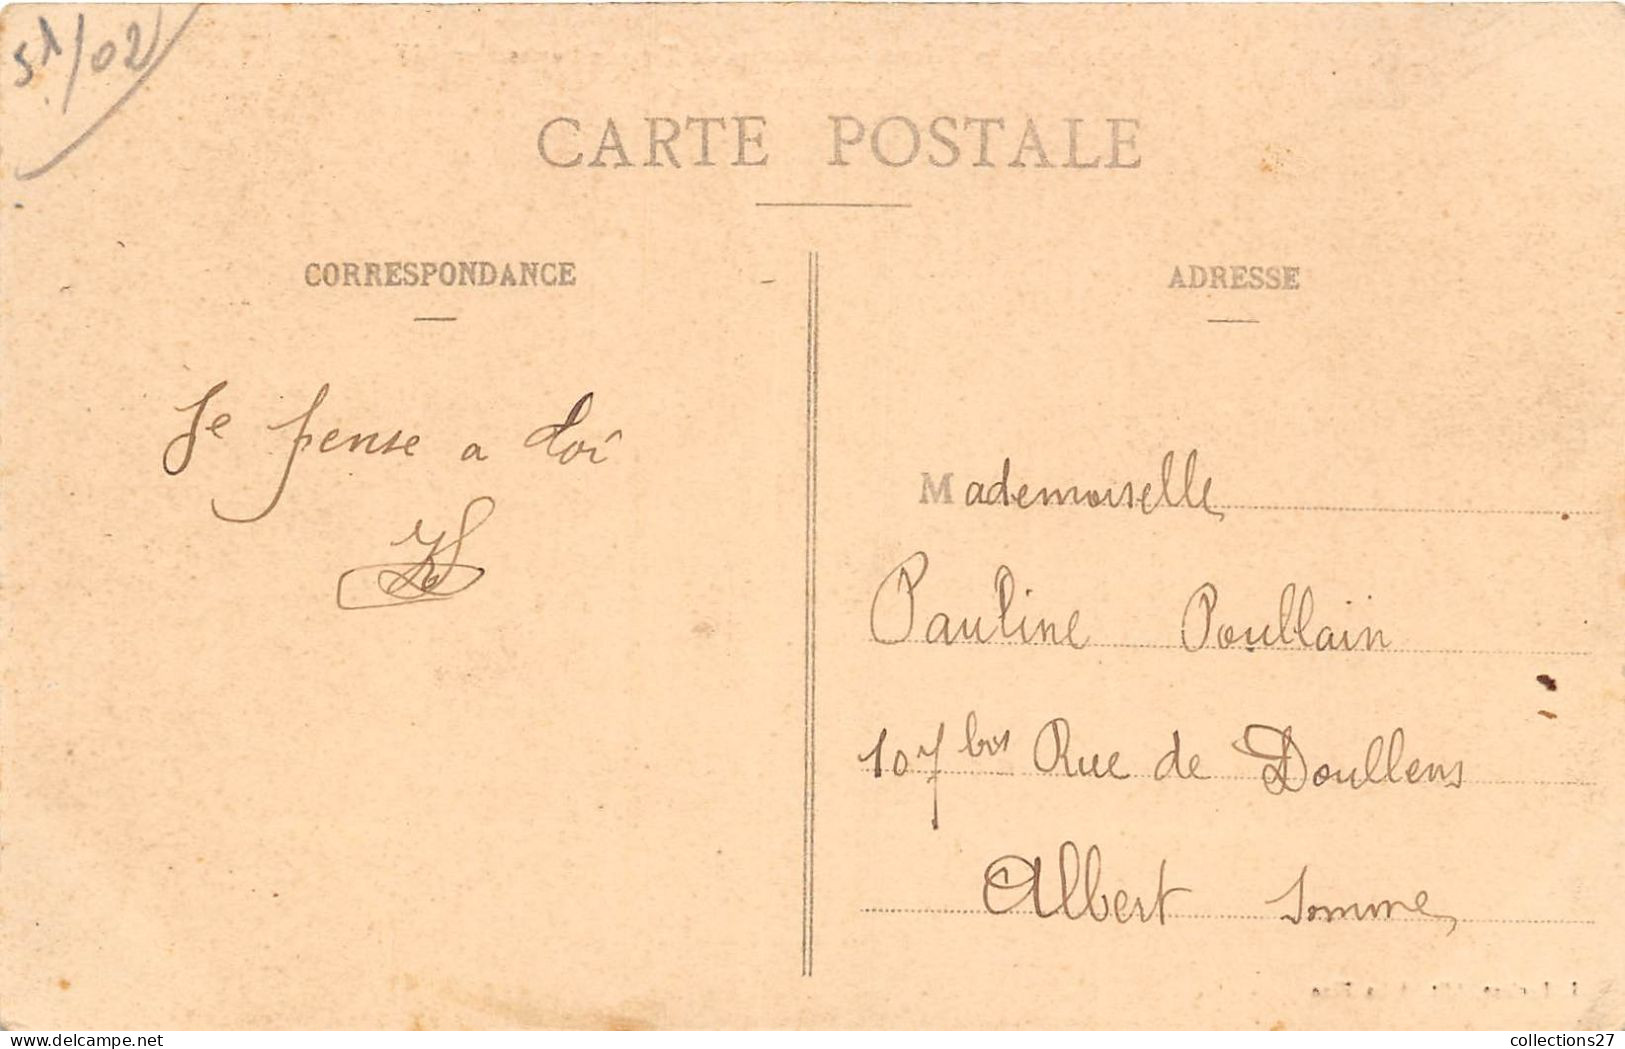 51/02
CARTE POSTALE
CORRESPONDANCE
Je pense a toi
ADRESSE
Mademoiselle
Pauline Poullain
107 bis Rue de Doullens
Albert Somme
www.delcampe.net
collections27